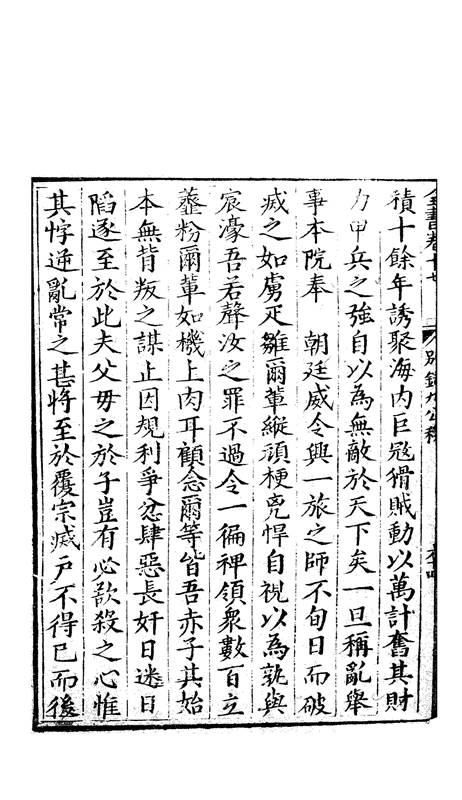 全書卷十七
別錄九公移
積十餘年誘聚海内巨冦猾賊動以萬計奮其財
力甲兵之強自以為無敵於天下矣一旦稱亂舉
事本院奉　朝廷威令興一旅之師不旬日而破
㓕之如虜疋雛爾輩縱頑梗兇悍自視以為孰與
宸濠吾若聲汝之罪不過令一徧裨領衆數百立
虀粉爾輩如機上肉耳顧念爾等皆吾赤子其始
本無背叛之謀止因規利爭忿肆惡長奸日迷日
䧟遂至於此夫父母之於子豈有必欲殺之心惟
其悖逆亂常之甚將至於覆宗㓕户不得已而後